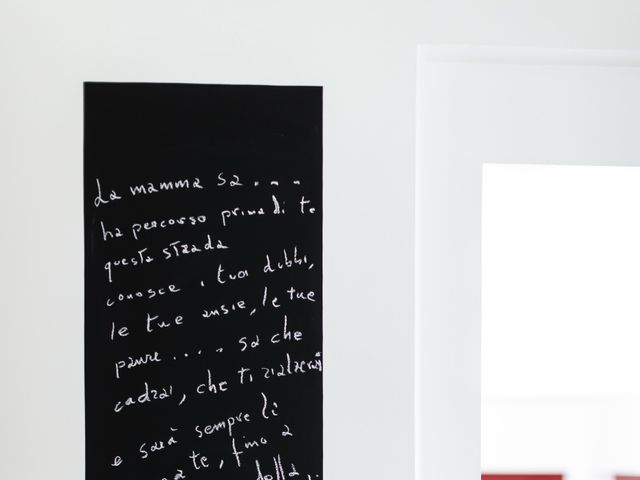 La mamma sa....
ha percorso prima di te
questa strada
conosce i tuoi dubbi,
le tue ansie, le tue
paure..... sa che
cadrai, che ti rialzerai
e sarà sempre lì
te, fino a
della